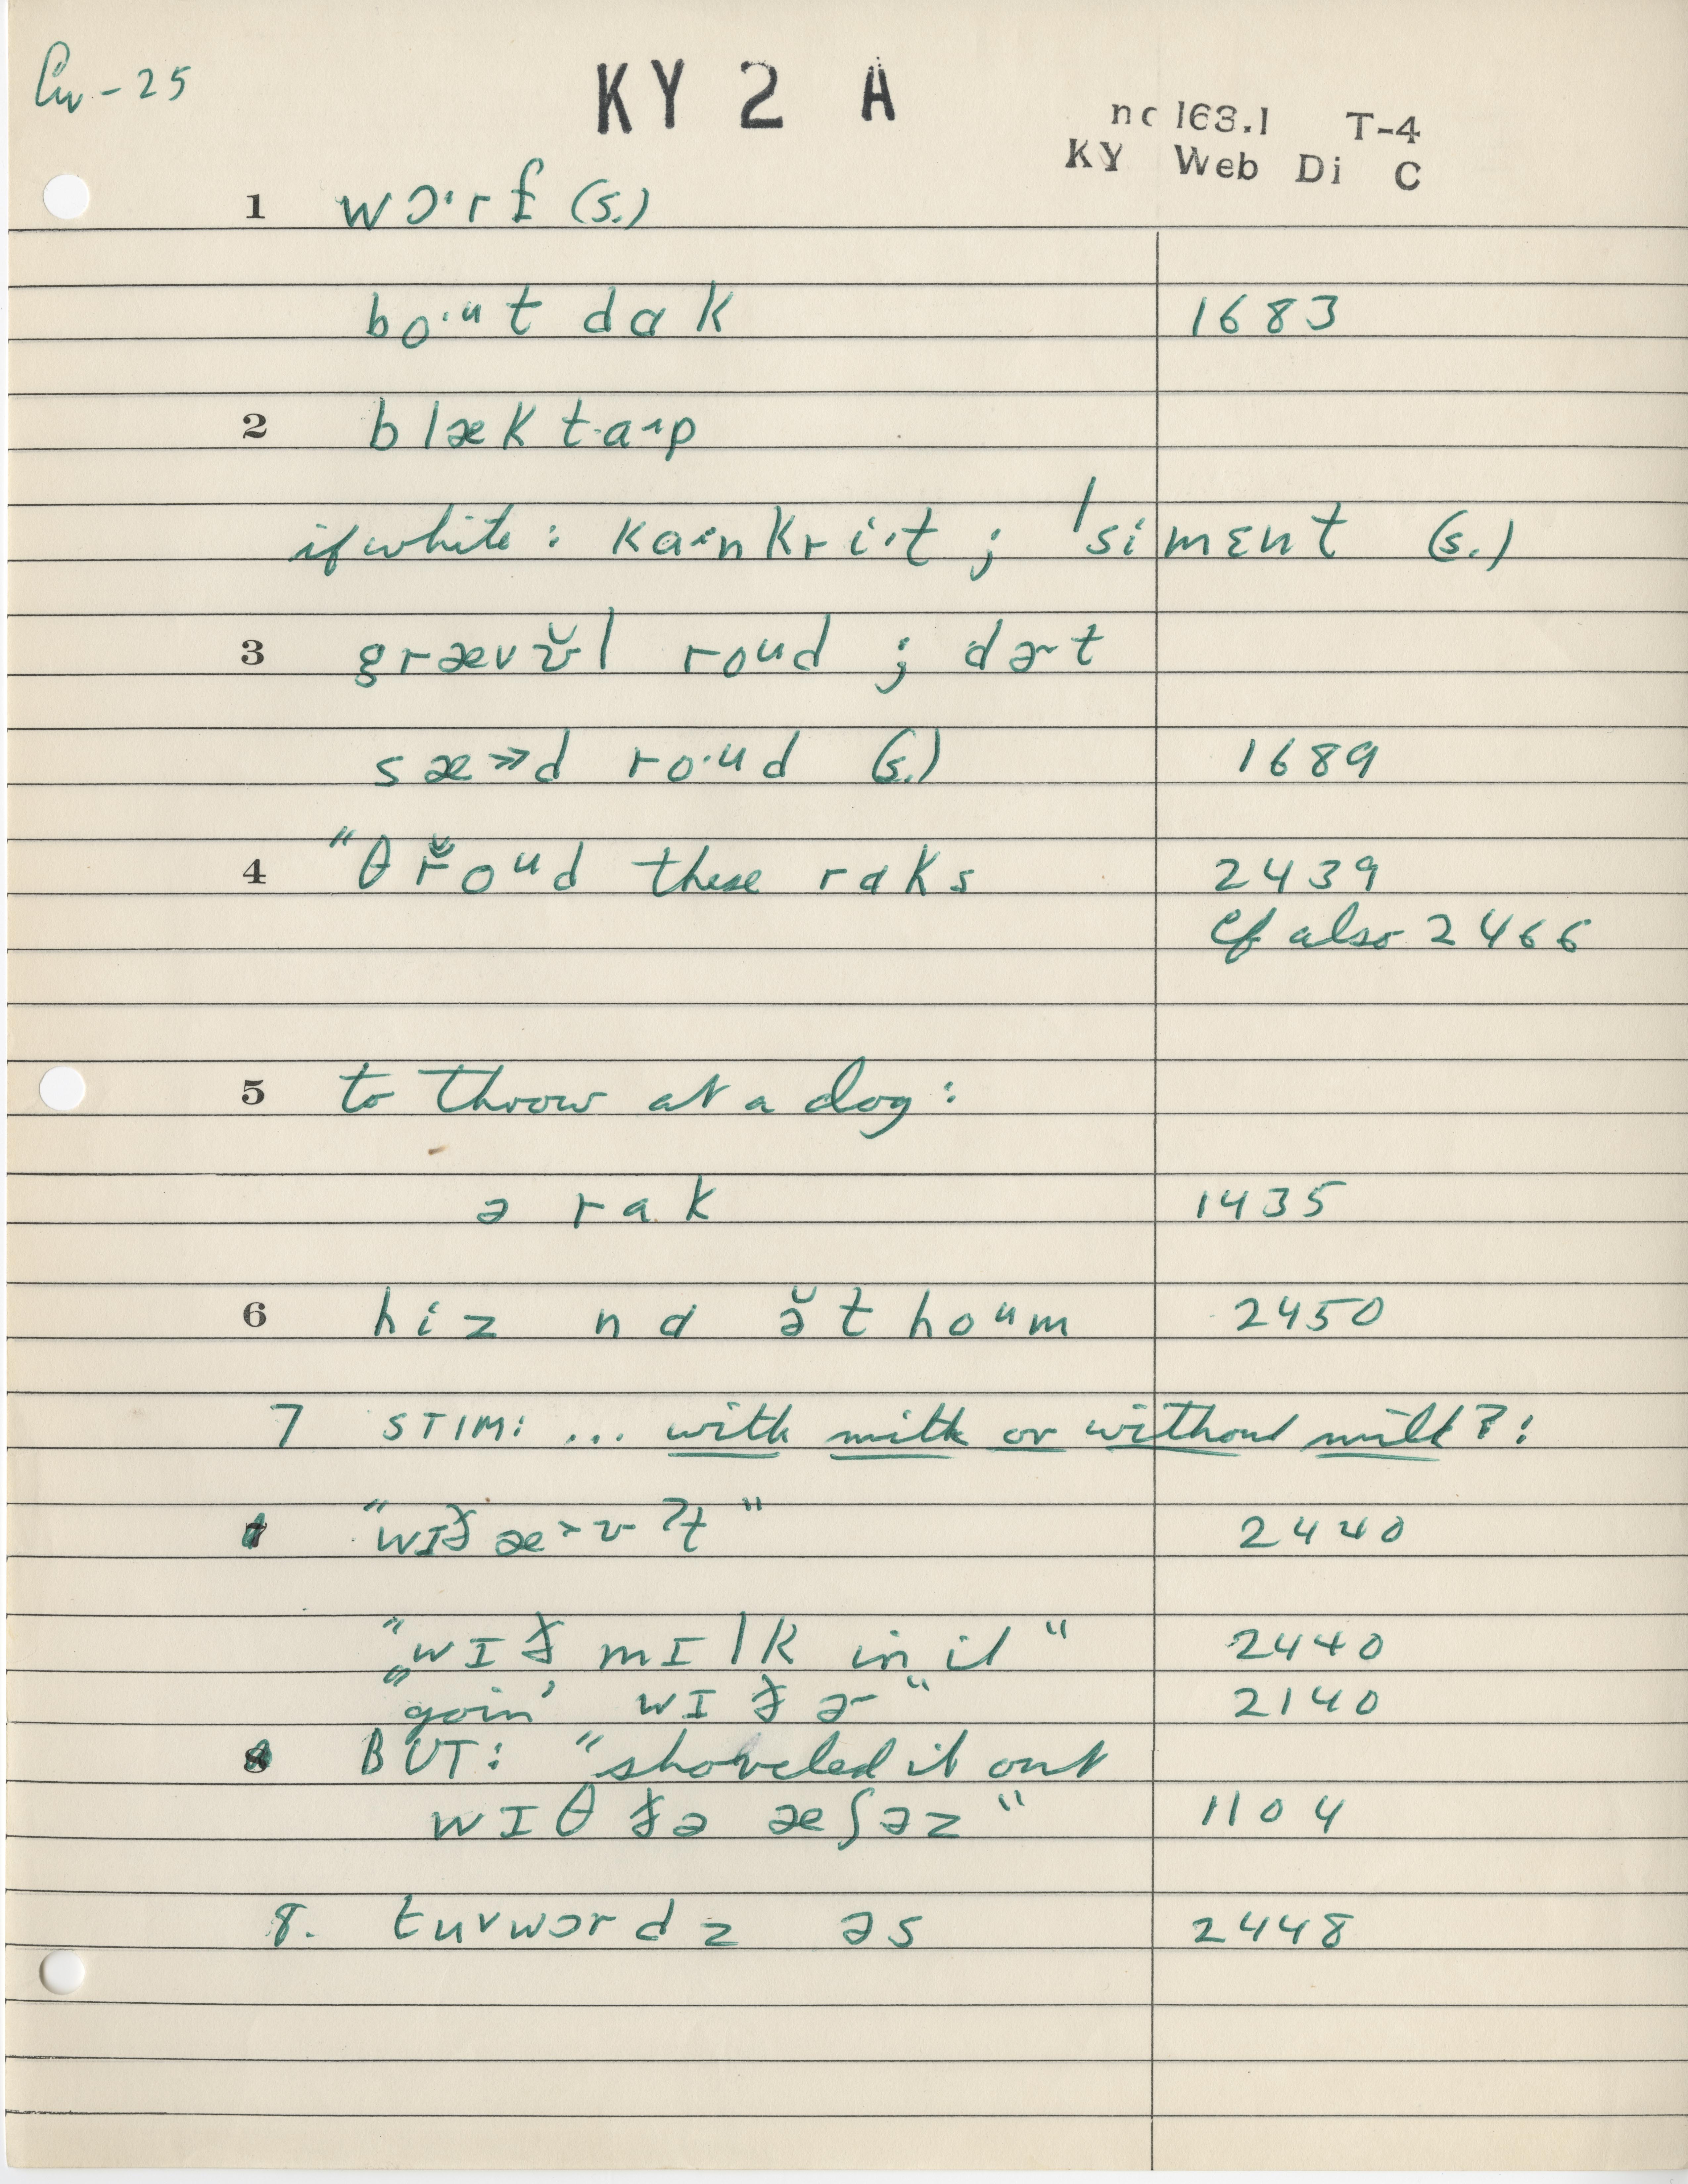 Cw - 25
KY 2 A
nc 163.1 T-4
KY Web Di C
1 wɔ·rf (s.)
bo·ᵘt dɑk 1683
2 blæk ta·p
if white: kɑ·nkri·t ; 'simɛnt (s.)
3 grævɪ̆l roᵘd ; dɚt
sæ»d ro·ᵘd (s.) 1689
4 "θr̆oᵘd these rɑks 2439
cf also 2466
5 to throw at a dog:
ə rɑk 1435
6 hiz nɑ ə̆t hoᵘm 2450
7 STIM: ... with milk or without milk?:
"wɪð æ>ʊ-ʔt" 2440
"wɪð mɪlk in it" 2440
"goin' wɪðɚ" 2140
BUT: "shoveled it out
wɪθ ðə æʃəz" 1104
8. tuvwɔrdz əs 2448